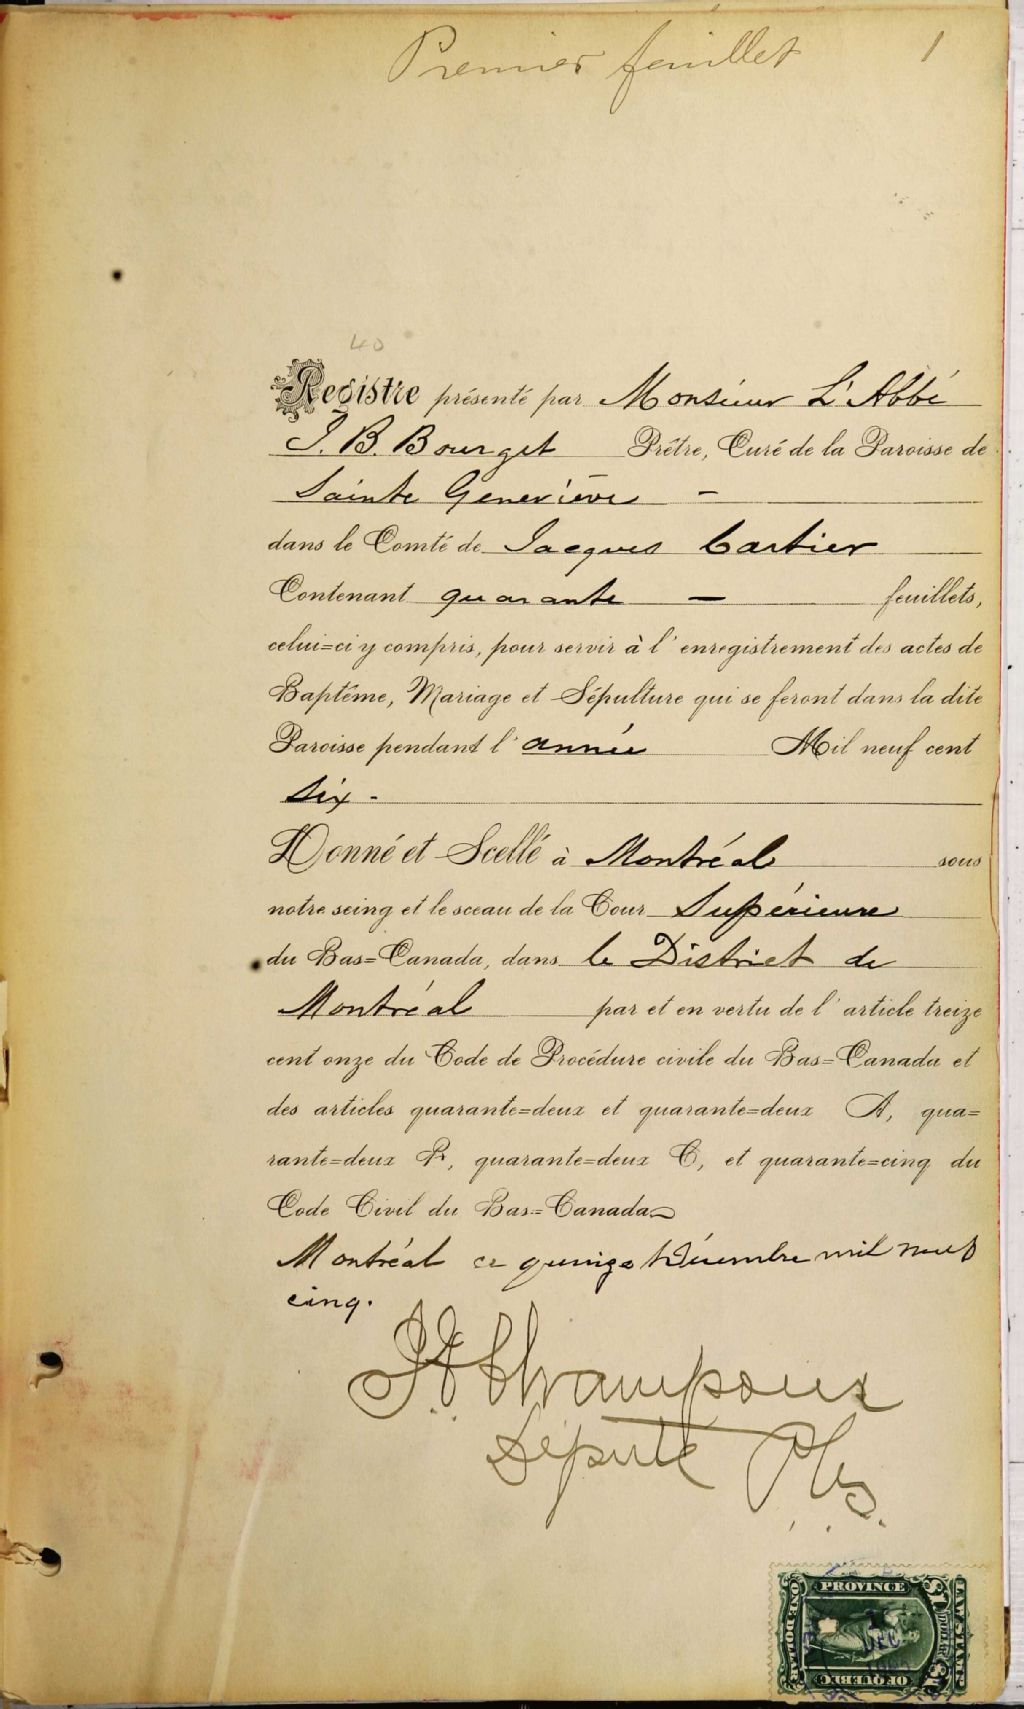 Premier feuillet 1
40
Registre présenté par Monsieur L'Abbé
J. B. Bourget Prêtre, Curé de la Paroisse de
Sainte Geneviève –
dans le Comté de Jacques Cartier
Contenant quarante – feuillets,
celui=ci y compris, pour servir à l'enregistrement des actes de
Baptême, Mariage et Sépulture qui se feront dans la dite
Paroisse pendant l'année Mil neuf cent
six -
Donné et Scellé à Montréal sous
notre seing et le sceau de la Cour Supérieure
du Bas=Canada, dans le District de
Montréal par et en vertu de l'article treize
cent onze du Code de Procédure civile du Bas=Canada et
des articles quarante=deux et quarante=deux A, qua=
rante=deux B, quarante=deux C, et quarante=cinq du
Code Civil du Bas=Canada
Montréal ce quinze Décembre mil neuf
cinq.
Champoux
Député P
PROVINCE
OF QUEBEC
ONE DOLLAR
LAW STAMP
$1
DOLLAR
$1
DEC